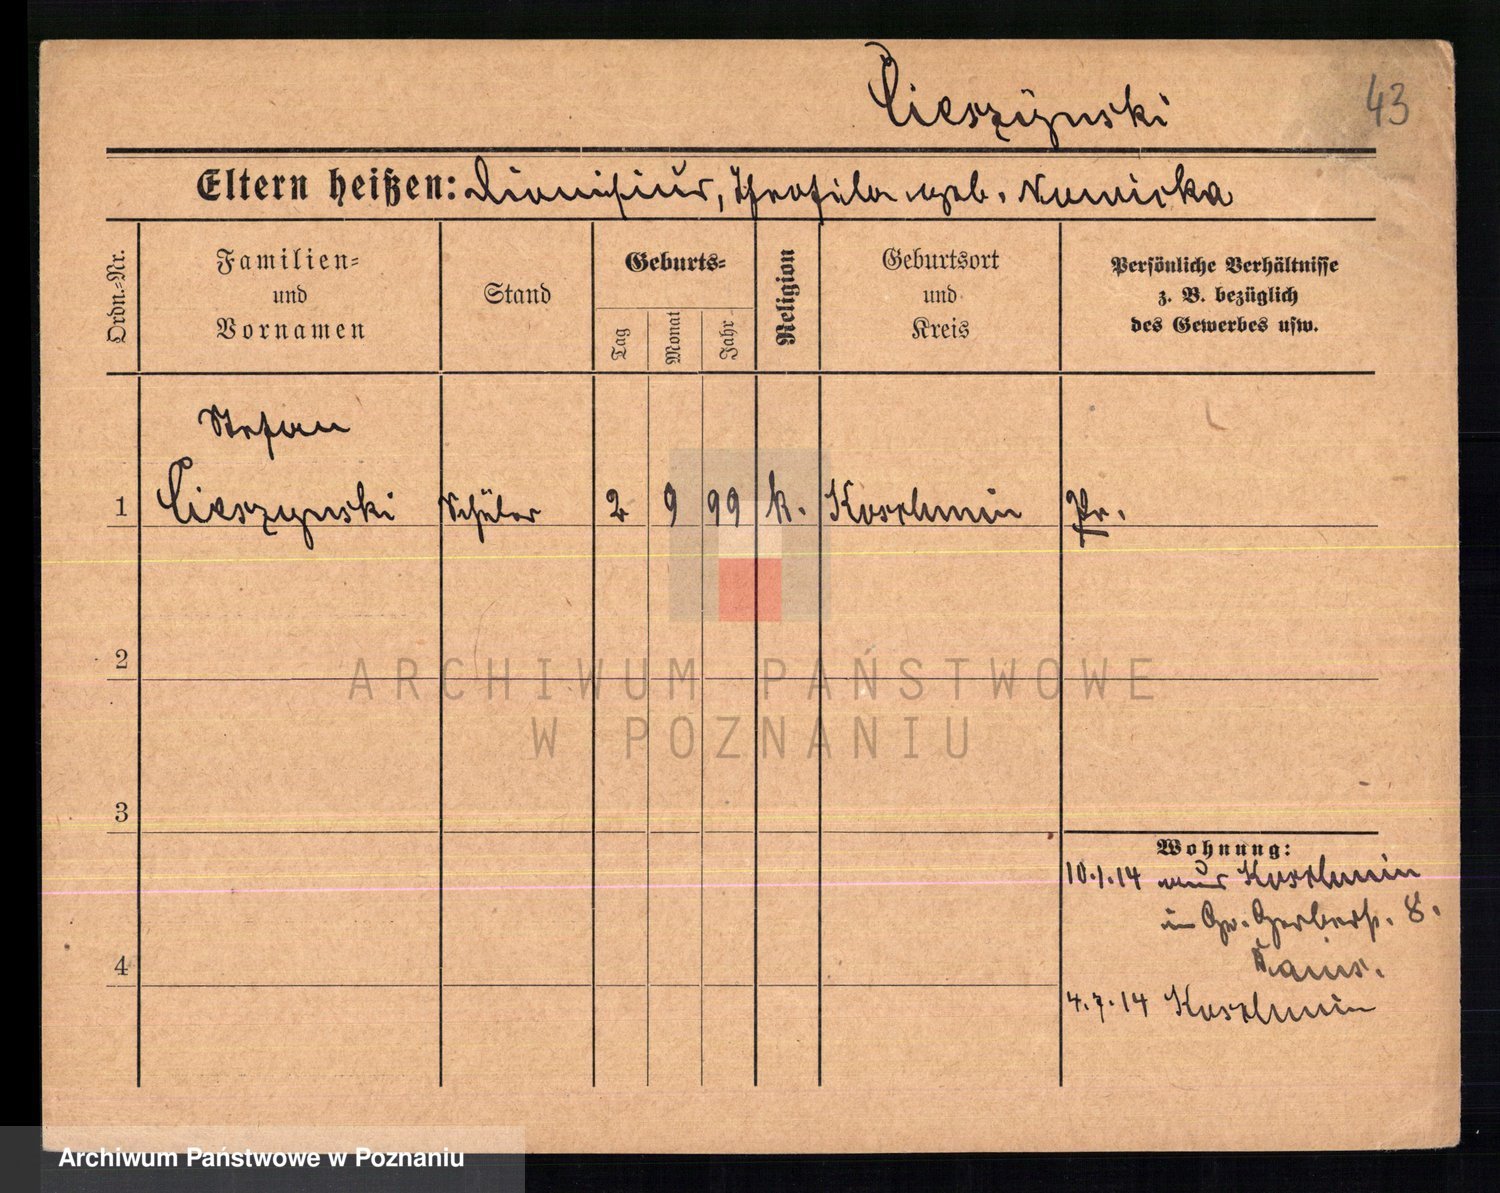 Cieszÿnski
43
Eltern heißen: Dionisius, Theofila geb. Nowicka
Ordn.-Nr.
Familien-
und
Vornamen
Stand
Geburts-
Tag
Monat
Jahr
Religion
Geburtsort
und
Kreis
Persönliche Verhältnisse
z. B. bezüglich
des Gewerbes usw.
Stefan
1 Cieszynski Schüler 2 9 99 k. Koschmin Pr.
2
3
4
Wohnung:
10.1.14 aus Koschmin
in Gr. Gerberst. 8.
4.7.14 Koschmin
ARCHIWUM PAŃSTWOWE
W POZNANIU
Archiwum Państwowe w Poznaniu